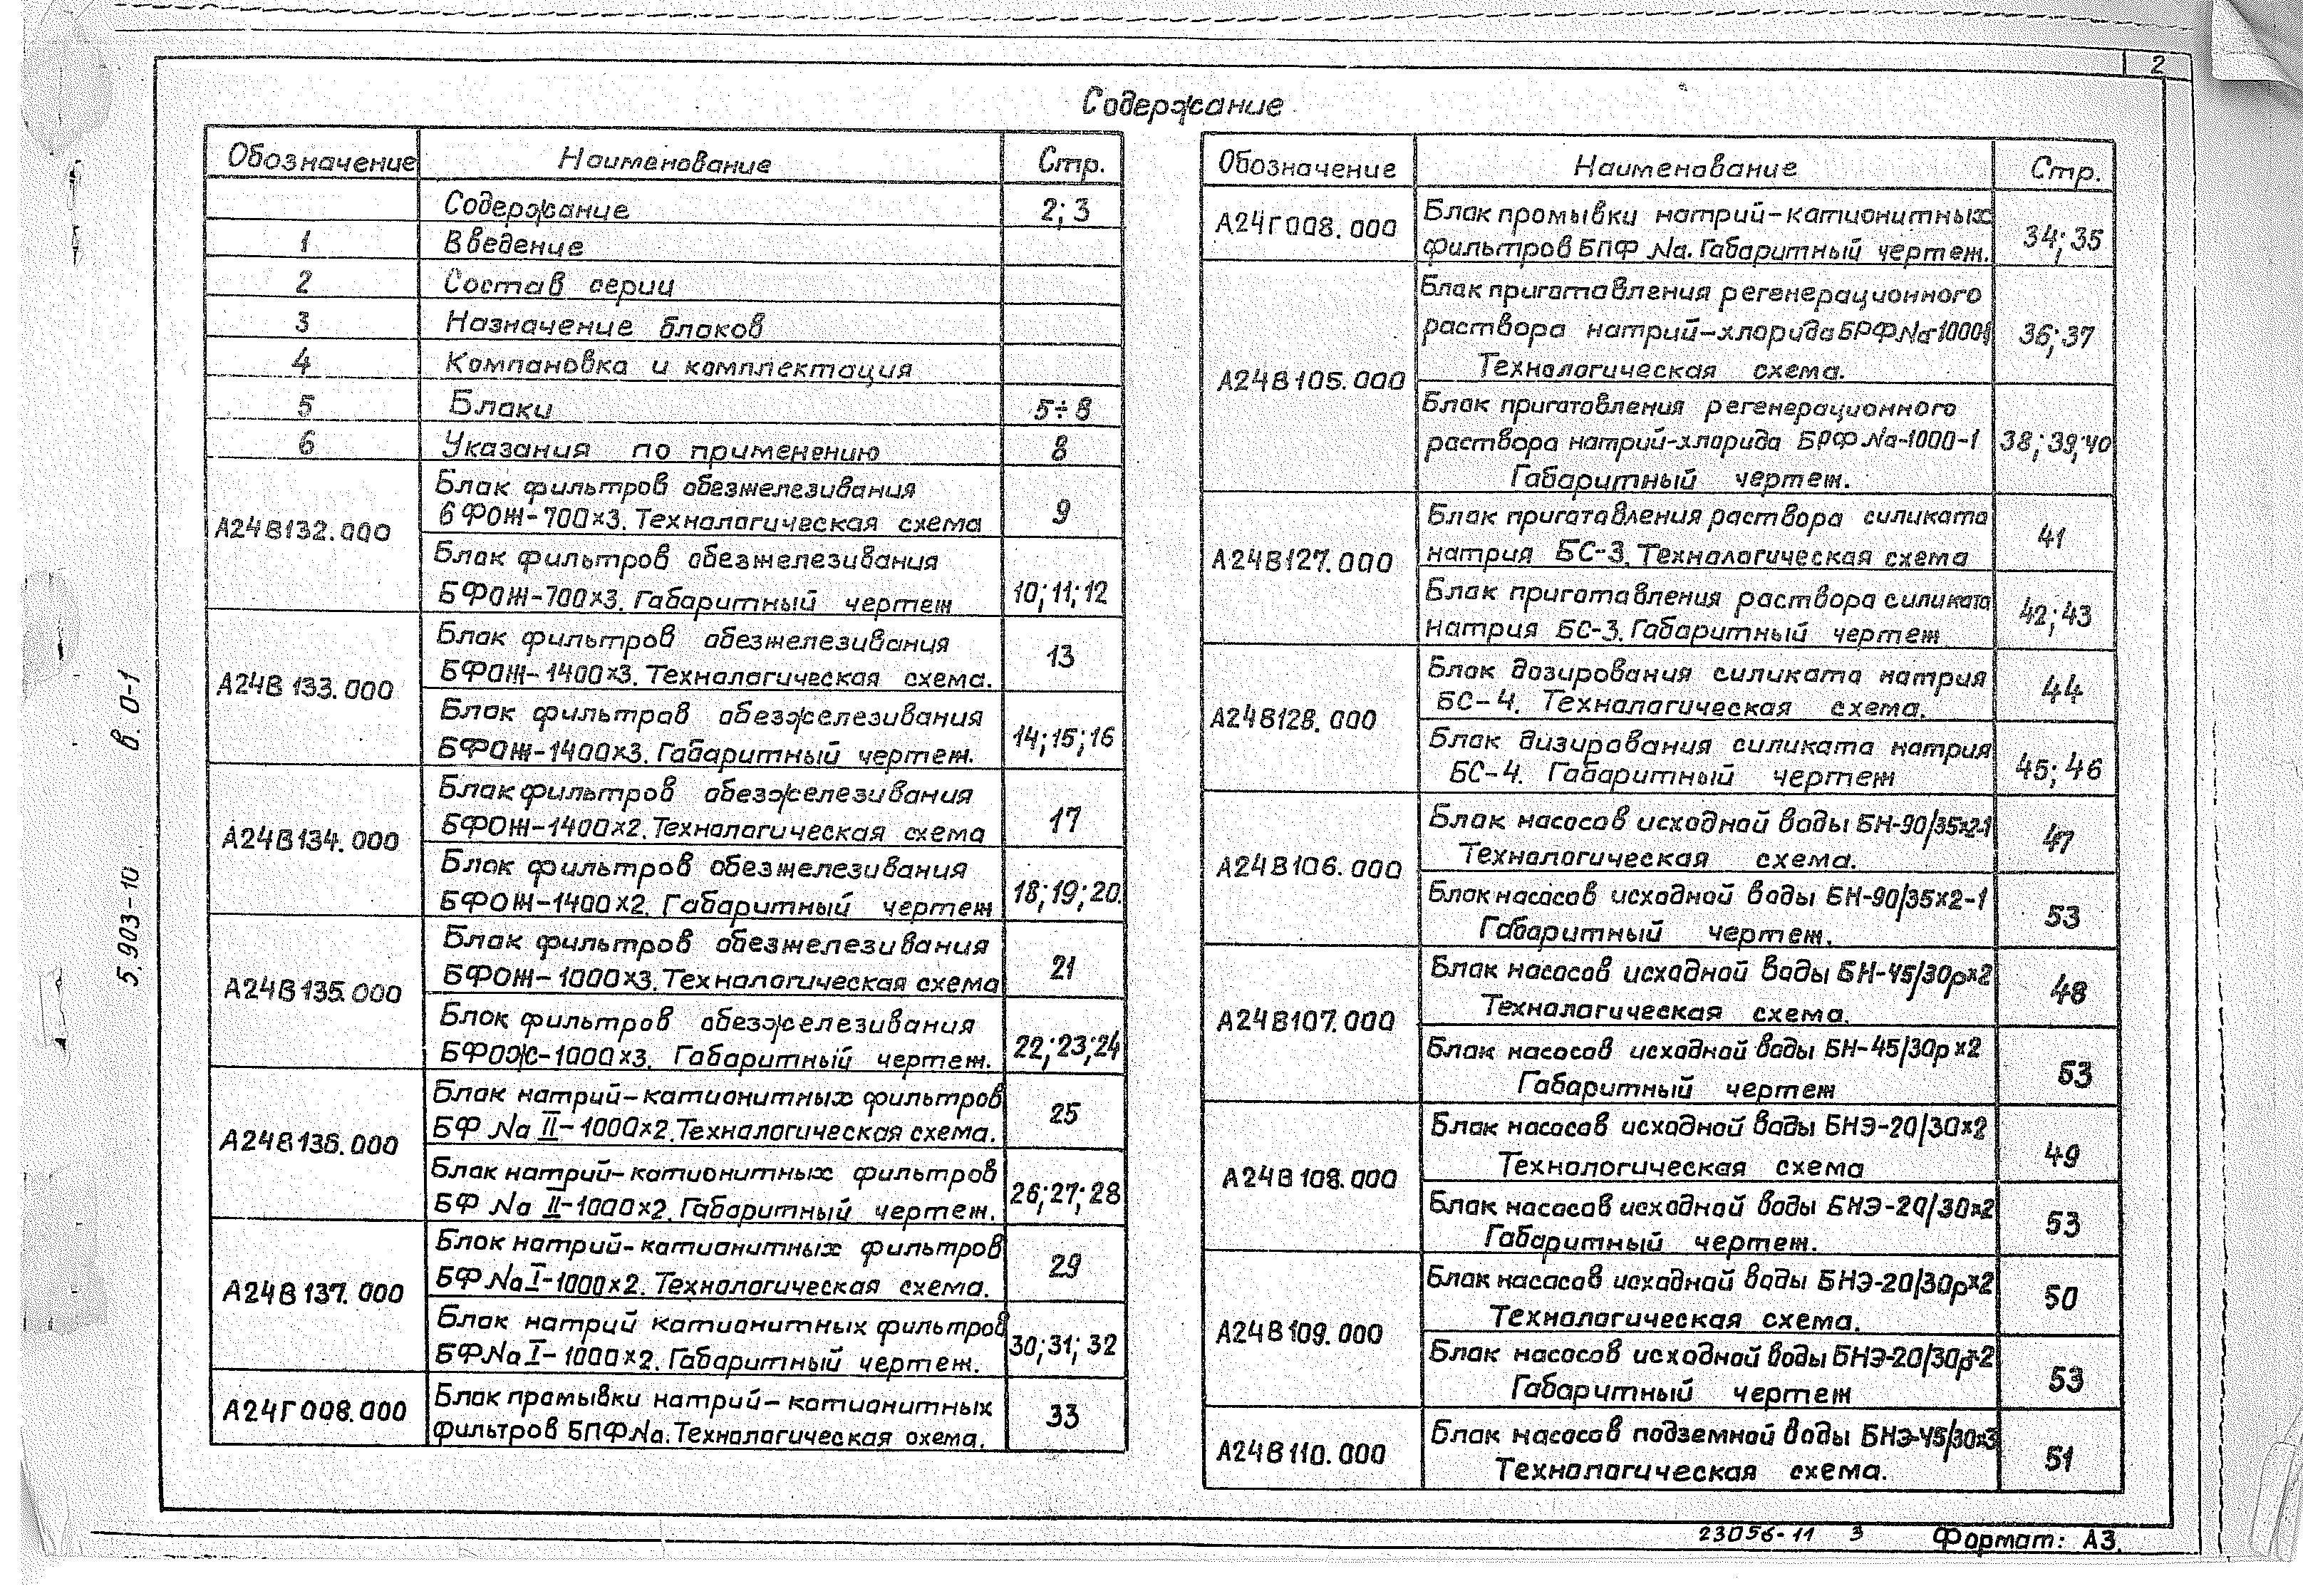 2
Содержание
Обозначение Наименование Стр.
Содержание 2; 3
1 Введение
2 Состав серии
3 Назначение блоков
4 Компановка и комплектация
5 Блоки 5÷8
6 Указания по применению 8
А24В132.000
Блок фильтров обезжелезивания
БФОЖ-700×3. Технологическая схема 9
Блок фильтров обезжелезивания
БФОЖ-700×3. Габаритный чертеж 10; 11; 12
А24В133.000
Блок фильтров обезжелезивания
БФОЖ-1400×3. Технологическая схема. 13
Блок фильтров обезжелезивания
БФОЖ-1400×3. Габаритный чертеж. 14; 15; 16
А24В134.000
Блок фильтров обезжелезивания
БФОЖ-1400×2. Технологическая схема 17
Блок фильтров обезжелезивания
БФОЖ-1400×2. Габаритный чертеж 18; 19; 20.
А24В135.000
Блок фильтров обезжелезивания
БФОЖ-1000×3. Технологическая схема 21
Блок фильтров обезжелезивания
БФОЖ-1000×3. Габаритный чертеж. 22; 23; 24
А24В136.000
Блок натрий-катионитных фильтров
БФ Na II-1000×2. Технологическая схема. 25
Блок натрий-катионитных фильтров
БФ Na II-1000×2. Габаритный чертеж. 26; 27; 28
А24В137.000
Блок натрий-катионитных фильтров
БФ Na I-1000×2. Технологическая схема. 29
Блок натрий катионитных фильтров
БФ Na I-1000×2. Габаритный чертеж. 30; 31; 32
А24Г008.000
Блок промывки натрий-катионитных
фильтров БПФ Na. Технологическая схема. 33
Обозначение Наименование Стр.
А24Г008.000
Блок промывки натрий-катионитных
фильтров БПФ Na. Габаритный чертеж. 34; 35
А24В105.000
Блок приготовления регенерационного
раствора натрий-хлорида БРФ Na-1000-1
Технологическая схема. 36; 37
Блок приготовления регенерационного
раствора натрий-хлорида БРФ Na-1000-1
Габаритный чертеж. 38; 39; 40
А24В127.000
Блок приготовления раствора силиката
натрия БС-3. Технологическая схема 41
Блок приготовления раствора силиката
натрия БС-3. Габаритный чертеж 42; 43
А24В128.000
Блок дозирования силиката натрия
БС-4. Технологическая схема. 44
Блок дизирования силиката натрия
БС-4. Габаритный чертеж 45; 46
А24В106.000
Блок насосов исходной воды БН-90/35×2-1
Технологическая схема. 47
Блок насосов исходной воды БН-90/35×2-1
Габаритный чертеж. 53
А24В107.000
Блок насосов исходной воды БН-45/30р×2
Технологическая схема. 48
Блок насосов исходной воды БН-45/30р×2
Габаритный чертеж 53
А24В108.000
Блок насосов исходной воды БНЭ-20/30×2
Технологическая схема 49
Блок насосов исходной воды БНЭ-20/30×2
Габаритный чертеж. 53
А24В109.000
Блок насосов исходной воды БНЭ-20/30р×2
Технологическая схема. 50
Блок насосов исходной воды БНЭ-20/30р×2
Габаритный чертеж 53
А24В110.000
Блок насосов подземной воды БНЭ-45/30×3
Технологическая схема. 51
5.903-10 в. 0-1
23056-11 3 Формат: А3.